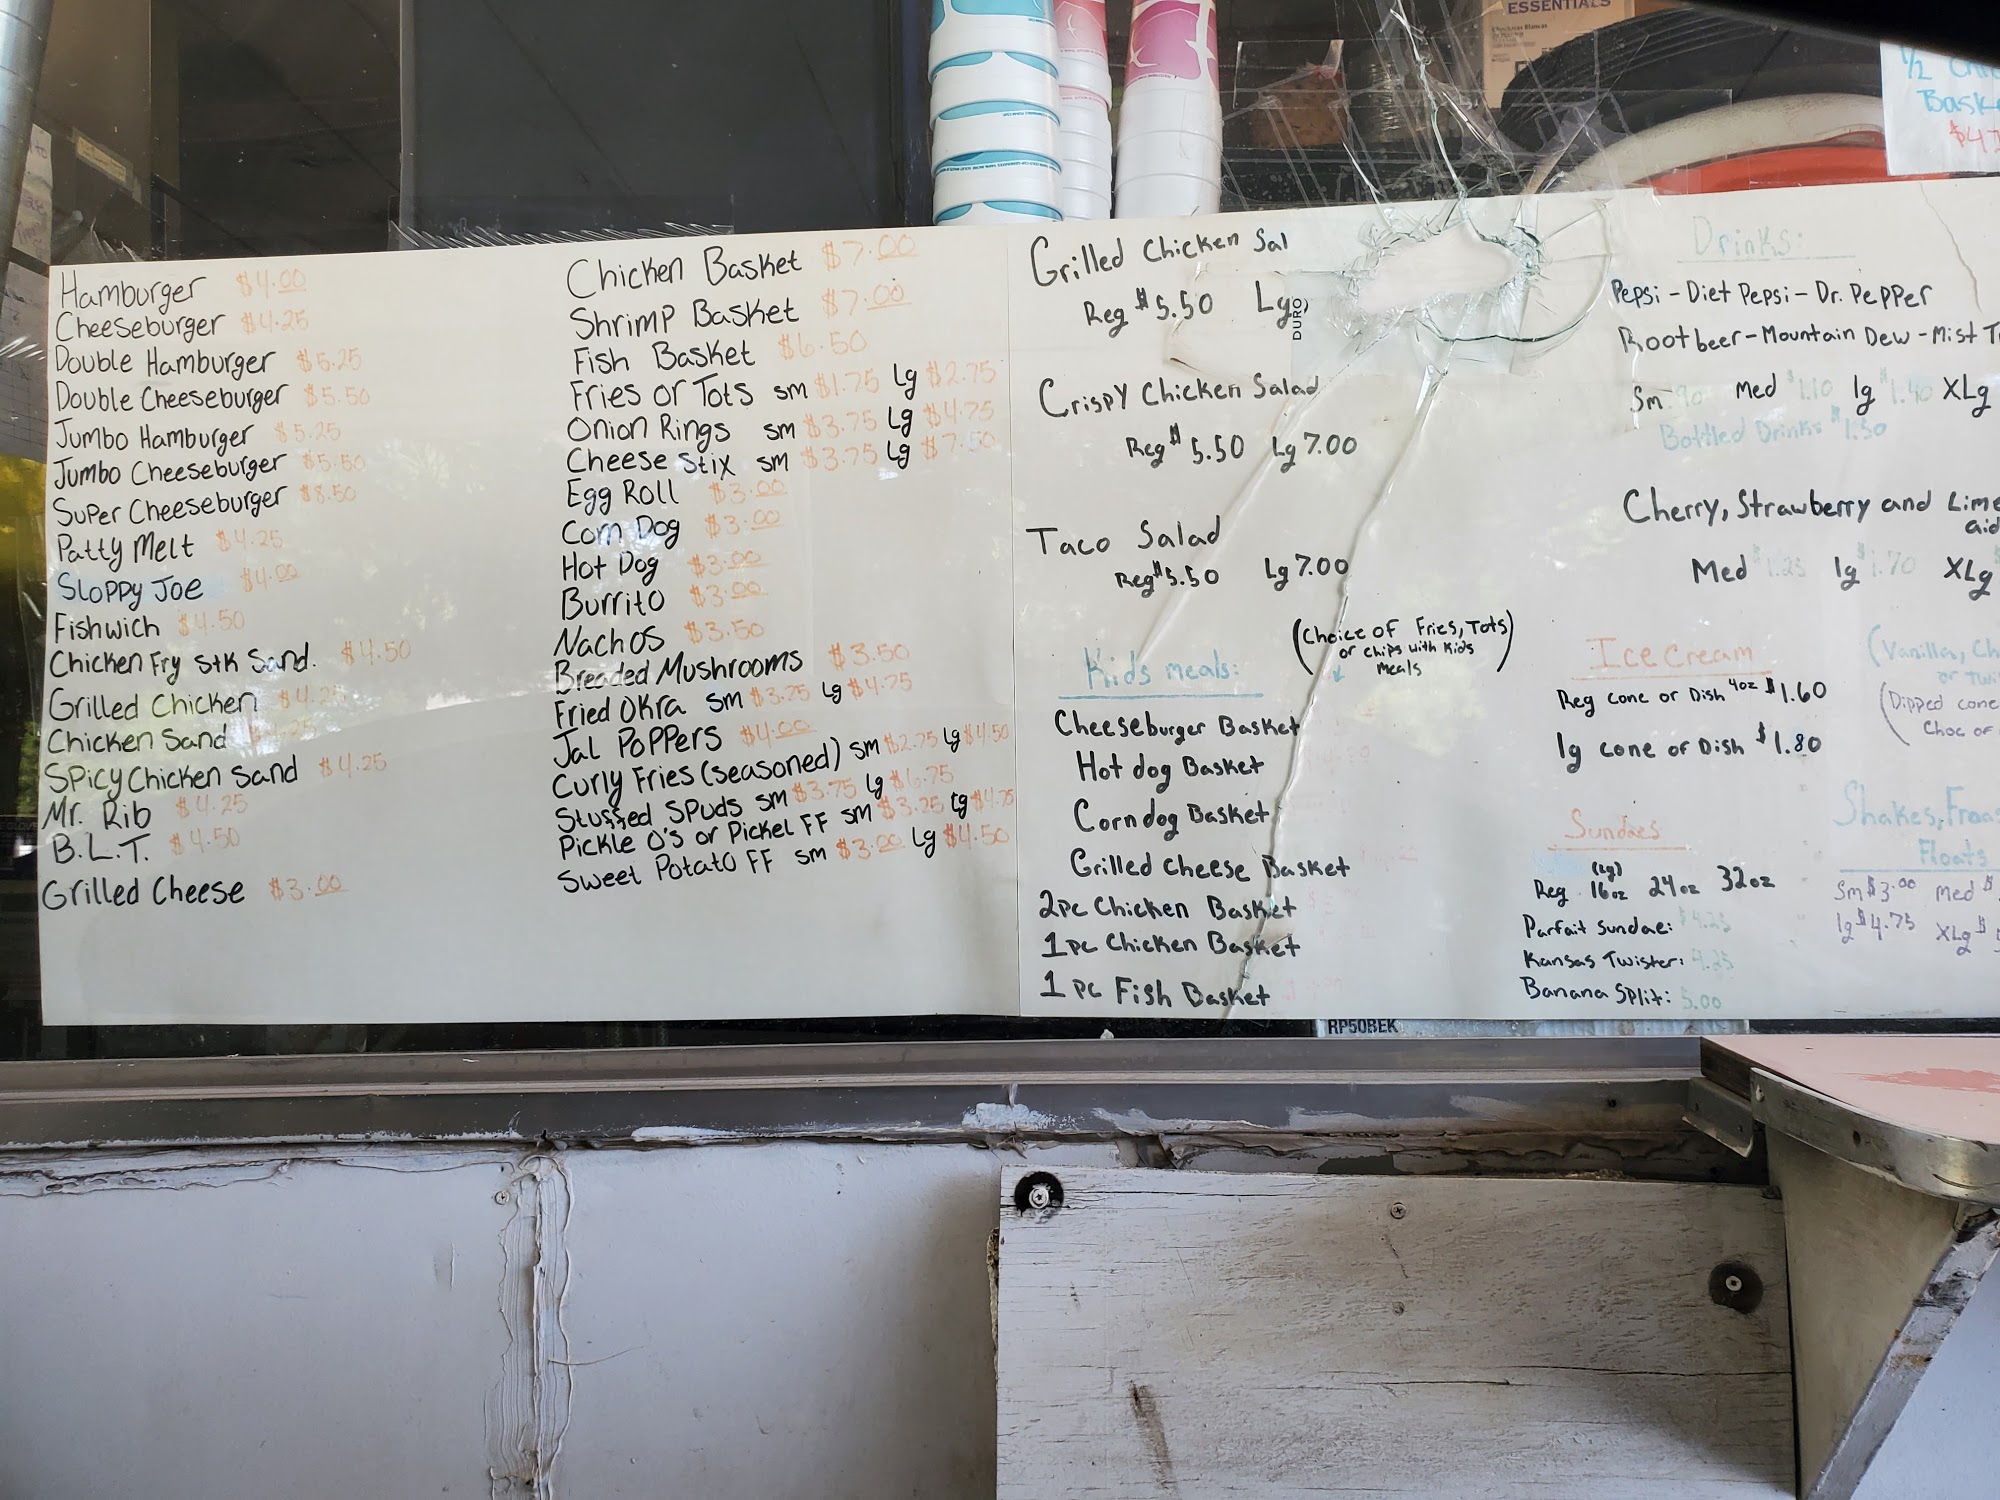 Hamburger $4.00
Cheeseburger $4.25
Double Hamburger $5.25
Double Cheeseburger $5.50
Jumbo Hamburger $5.25
Jumbo Cheeseburger $5.50
Super Cheeseburger $8.50
Patty Melt $4.25
Sloppy Joe $4.00
Fishwich $4.50
Chicken Fry Stk Sand. $4.50
Grilled Chicken $4.25
Chicken Sand
Spicy Chicken Sand $4.25
Mr. Rib $4.25
B.L.T. $4.50
Grilled Cheese $3.00
Chicken Basket $7.00
Shrimp Basket $7.00
Fish Basket $6.50
Fries or Tots sm $1.75 Lg $2.75
Onion Rings sm $3.75 Lg $4.75
Cheese Stix sm $3.75 Lg $7.50
Egg Roll $3.00
Corn Dog $3.00
Hot Dog $3.00
Burrito $3.00
Nachos $3.50
Breaded Mushrooms $3.50
Fried Okra sm $3.25 Lg $4.75
Jal Poppers $4.00
Curly Fries (seasoned) sm $2.75 Lg $4.50
Stuffed Spuds sm $3.75 Lg $6.75
Pickle O's or Pickel FF sm $3.25 Lg $4.75
Sweet Potato FF sm $3.00 Lg $4.50
Grilled Chicken Sal
Reg $5.50 Lg
DURO
Crispy Chicken Salad
Reg $5.50 Lg 7.00
Taco Salad
Reg $5.50 Lg 7.00
(Choice of Fries, Tots)
or chips with Kids
meals
Kids meals:
Cheeseburger Basket
Hot dog Basket
Corndog Basket
Grilled Cheese Basket
2pc Chicken Basket
1pc Chicken Basket
1pc Fish Basket
Drinks:
Pepsi - Diet Pepsi - Dr. Pepper
Rootbeer - Mountain Dew - Mist
Sm .90 Med $1.10 lg $1.40 XLg
Bottled Drinks $1.50
Cherry, Strawberry and Lime
aid
Med $1.25 lg $1.70 XLg
Ice Cream
Reg cone or Dish 4oz $1.60
lg cone or Dish $1.80
(Vanilla, Ch
or Twi
(Dipped cone
Choc or
Sundaes
(lg)
Reg 16oz 24oz 32oz
Parfait Sundae: $4.25
Kansas Twister: 4.25
Banana Split: 5.00
Shakes,
Floats
Sm $3.00 Med $
lg $4.75 XLg $
ESSENTIALS
1/2
Bask
$4
RP50REK